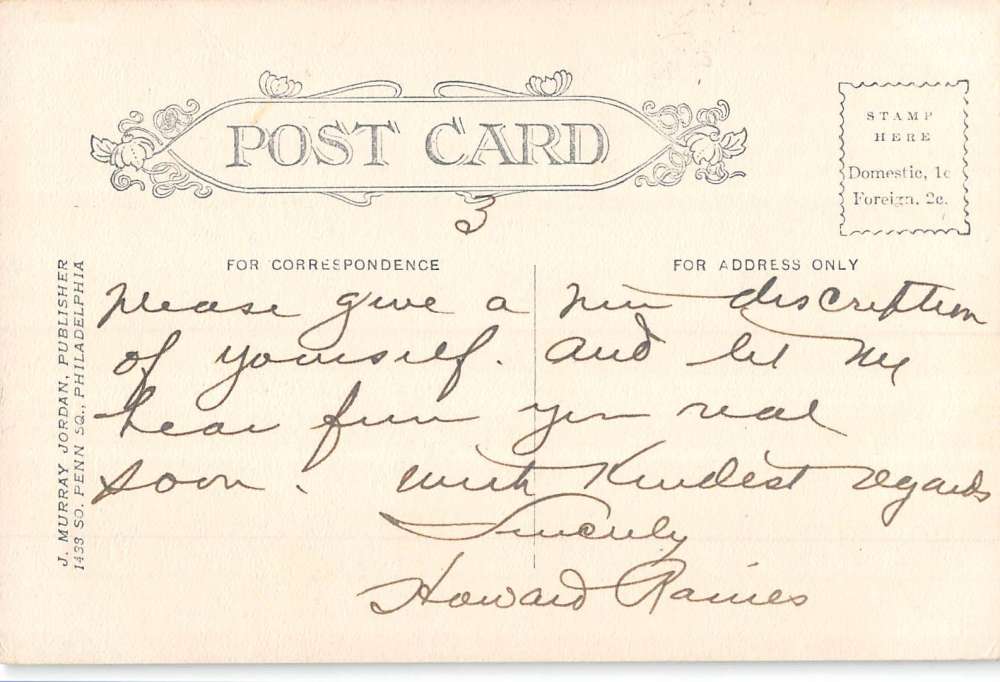 POST CARD
STAMP
HERE
Domestic, 1c
Foreign, 2c.
3
FOR CORRESPONDENCE
FOR ADDRESS ONLY
please give a discription
of yourself. and let me
hear from you real
soon. with Kindest regards
Sincerely
Howard Raines
J. MURRAY JORDAN, PUBLISHER
1433 SO. PENN SQ., PHILADELPHIA